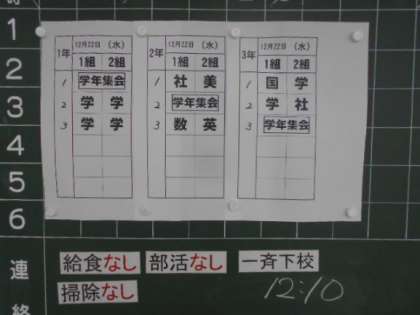 1
2
3
4
5
6
連
絡
1年 12月22日 (水)
1組 2組
1 学年集会
2 学 学
3 学 学
2年 12月22日 (水)
1組 2組
1 社 美
2 学年集会
3 数 英
3年 12月22日 (水)
1組 2組
1 国 学
2 学 社
3 学年集会
給食なし 部活なし 一斉下校
掃除なし 12:10